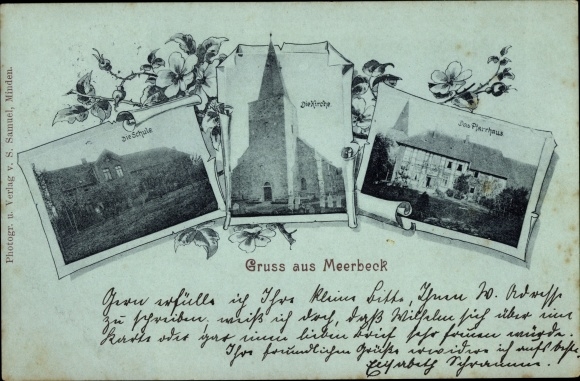 Photogr. u. Verlag v. S. Samuel, Minden.
Die Schule
Die Kirche.
Das Pfarrhaus
Gruss aus Meerbeck
Gern erfülle ich Ihre kleine Bitte, Ihnen W. Adresse
zu schreiben, weiß ich doch, daß Wilhelm sich über eine
Karte oder gar einen lieben Brief sehr freuen würde.
Ihre freundlichen Grüße erwidere ich aufs beste
Elisabeth Schramme.